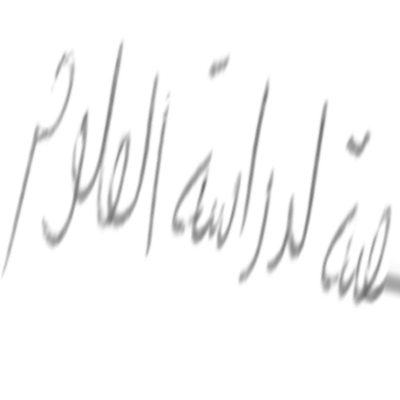 لدراسة العلوم